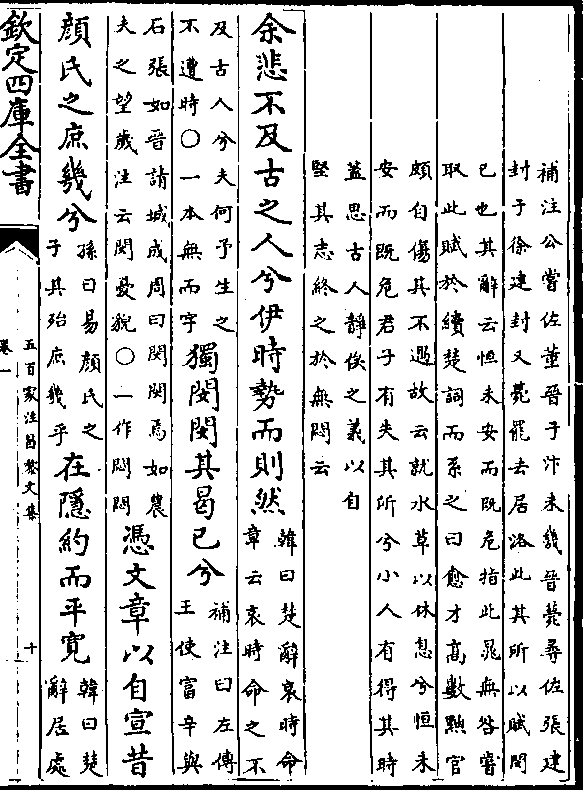 補注公嘗佐董晉于汴未幾晉薨尋佐張建
封于徐建封又薨罷去居洛此其所以賦閔
已也其辭云恒未安而既危指此晁無咎嘗
取此賦於續楚詞而系之曰愈才高數黜官
頗自傷其不遇故云就水草以休息兮恒未
安而既危君子有失其所兮小人有得其時
蓋思古人靜俟之義以自
堅其志終之於無悶云
余悲不及古之人兮伊時勢而則然韓曰楚辭哀時命章云哀時命之不
及古人兮夫何予生之不遭時〇一本無而字獨閔閔其曷已兮補注曰左傳王使富辛與
石張如晉請城成周曰閔閔焉如農夫之望歲注云閔憂貌〇一作悶悶憑文章以自宣昔
顏氏之庶幾兮孫曰易顏氏之子其殆庶幾乎在隱約而平寛韓曰楚辭居處
欽定四庫全書
卷一
五百家注昌黎文集
十